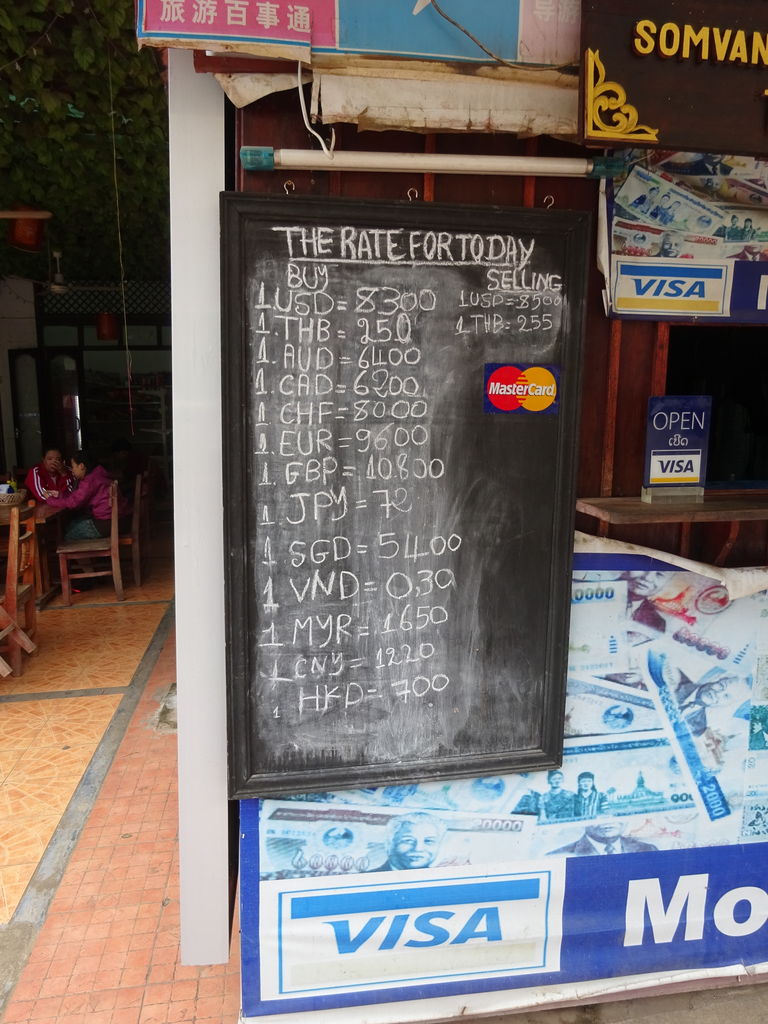 旅游百事通
导游
SOMVAN
THE RATE FOR TODAY
BUY SELLING
1 USD = 8300 1 USD = 8500
1. THB = 250 1 THB = 255
1. AUD = 6400
1. CAD = 6200
1. CHF = 8000
1. EUR = 9600
1. GBP = 10.800
1. JPY = 72
1 SGD = 5400
1 VND = 0,39
1 MYR = 1650
1 CNY = 1220
1 HKD = 700
MasterCard
VISA
OPEN
ເປີດ
VISA
0000
20000
2000
VISA
Mo